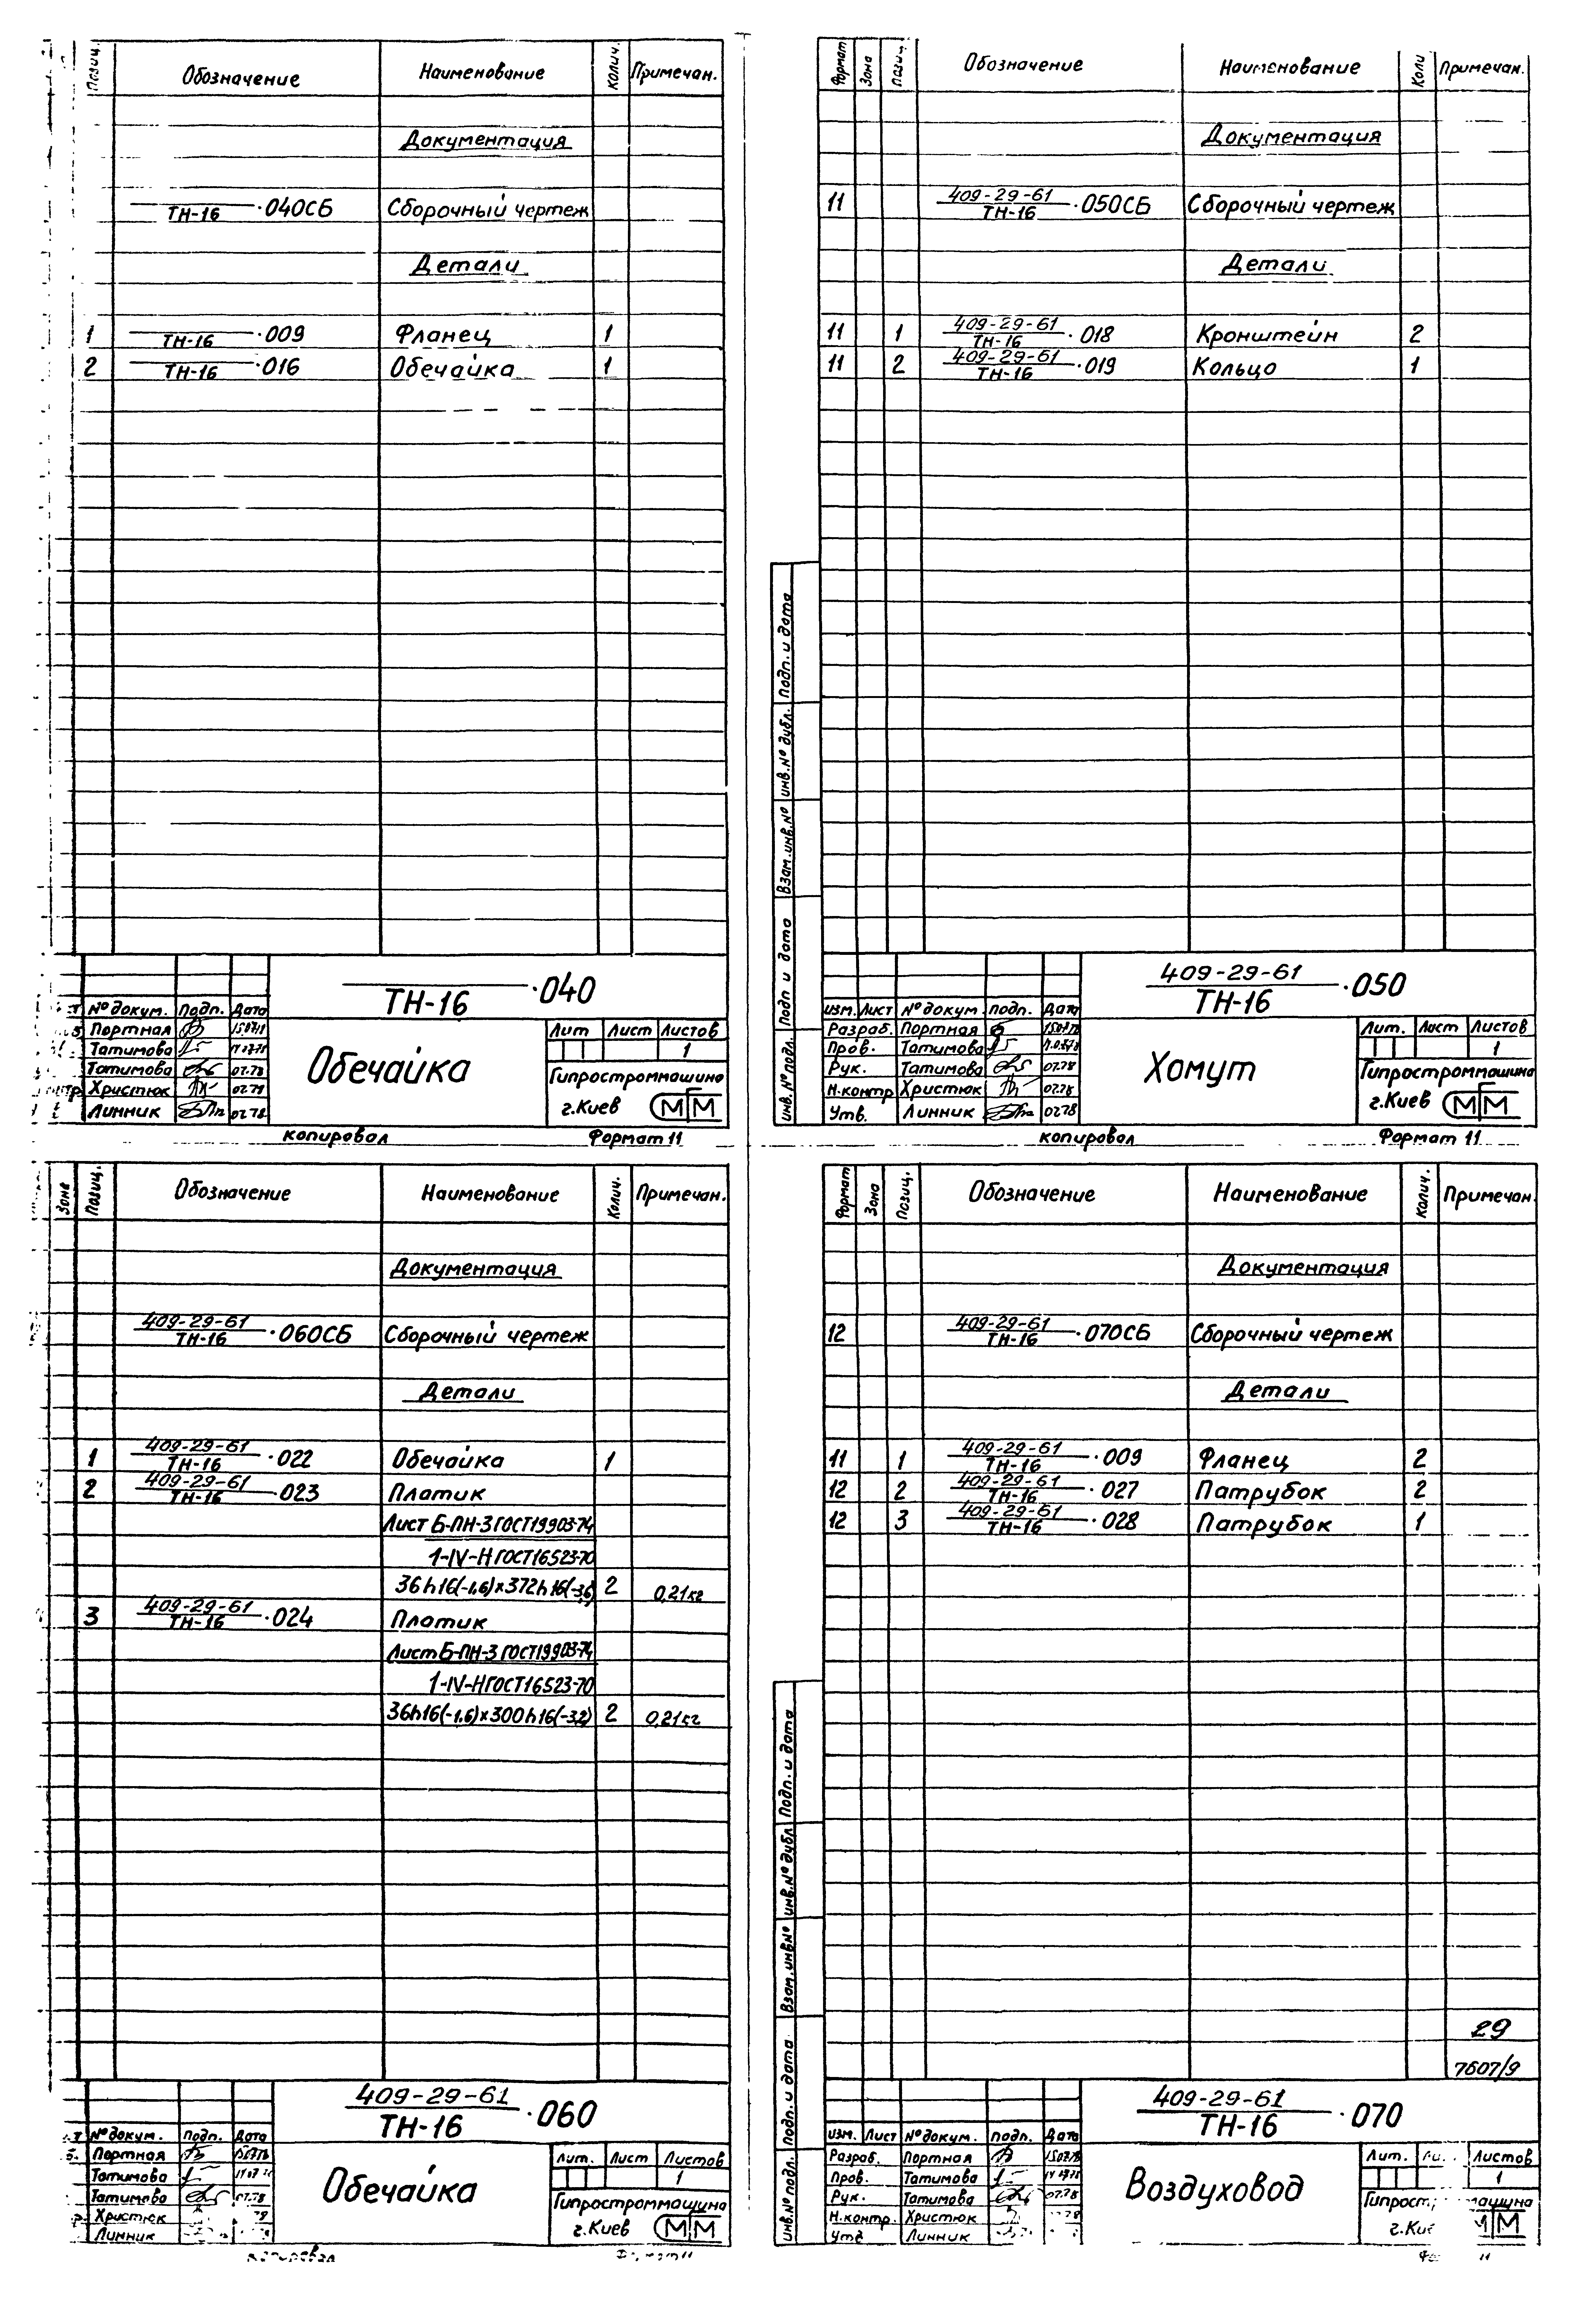 Позиц. Обозначение Наименование Колич. Примечан.
Документация
ТН-16 ·040СБ Сборочный чертеж
Детали
1 ТН-16 ·009 Фланец 1
2 ТН-16 ·016 Обечайка 1
ТН-16 ·040
№ докум. Подп. Дата
Портная
Татимова
Татимова 07.78
Христюк 07.78
Линник 07.78
Обечайка
Лит Лист Листов
1
Гипростроммашина
г.Киев ММ
копировал Формат 11
Формат Зона Обозначение Наименование Кол Примечан.
Документация
11 409-29-61
ТН-16 ·050СБ Сборочный чертеж
Детали
11 1 409-29-61
ТН-16 ·018 Кронштейн 2
11 2 409-29-61
ТН-16 ·019 Кольцо 1
Подп. и дата
инв.№ дубл.
Взам.инв.№
Подп и дата
инв.№ подл.
409-29-61
ТН-16 ·050
изм. Лист № докум. подп. Дата
Разраб. Портная
Пров. Татимова
Рук. Татимова 07.78
Н.контр Христюк 07.78
Утв. Линник 07.78
Хомут
Лит. Лист Листов
1
Гипростроммашина
г.Киев ММ
копировал Формат 11
Зона Позиц. Обозначение Наименование Колич. Примечан.
Документация
409-29-61
ТН-16 ·060СБ Сборочный чертеж
Детали
1 409-29-61
ТН-16 ·022 Обечайка 1
2 409-29-61
ТН-16 ·023 Платик
Лист Б-ПН-3 ГОСТ19903-74
1-IV-Н ГОСТ16523-70
36h16(-1,6)х372h16(-3,6) 2 0,21кг
3 409-29-61
ТН-16 ·024 Платик
Лист Б-ПН-3 ГОСТ19903-74
1-IV-Н ГОСТ16523-70
36h16(-1,6)х300h16(-3,2) 2 0,21кг
409-29-61
ТН-16 ·060
№ докум. подп. Дата
Портная
Татимова
Татимова 07.78
Христюк
Линник
Обечайка
Лит. Лист Листов
1
Гипростроммашина
г.Киев ММ
копировал
Формат Зона Позиц. Обозначение Наименование Колич. Примечан.
Документация
12 409-29-61
ТН-16 ·070СБ Сборочный чертеж
Детали
11 1 409-29-61
ТН-16 ·009 Фланец 2
12 2 409-29-61
ТН-16 ·027 Патрубок 2
12 3 409-29-61
ТН-16 ·028 Патрубок 1
29
7607/9
Подп. и дата
инв.№ дубл
Взам.инв№
Подп. и дата
инв.№ подл.
409-29-61
ТН-16 ·070
изм. Лист № докум. подп. Дата
Разраб. Портная
Пров. Татимова
Рук. Татимова 07.78
Н.контр. Христюк
Утв Линник
Воздуховод
Лит. Листов
1